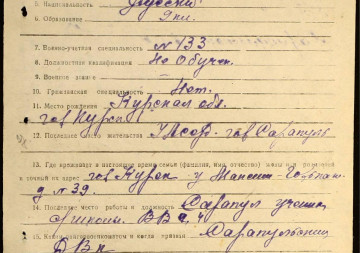 5. Национальность Русский
6. Образование 9 кл.
7. Военно-учетная специальность № 133
8. Должностная квалификация Не Обучен.
9. Военное звание
10. Гражданская специальность Нет.
11. Место рождения Курская обл.
гор Курск
12. Последнее место жительства гор Сарапуль
13. Где проживает в настоящее время семья (фамилия, имя, отчество) жены или родителей
и точный их адрес гор Курск у
д № 39.
14. Последнее место работы и должность Сарапул ученик
школы ВВ
15. Каким райвоенкоматом и когда призван Сарапульским